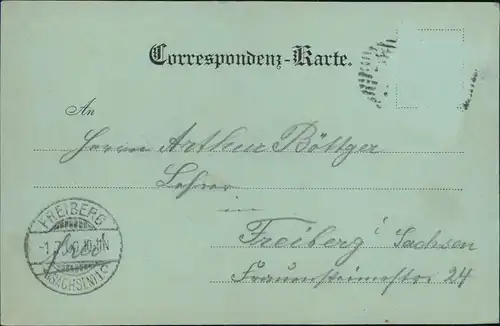 Correspondenz-Karte.
An
Herrn Arthur Böttger
Lehrer
in
Freiberg Sachsen
Frauensteinerstr 24
FREIBERG
(SACHSEN)